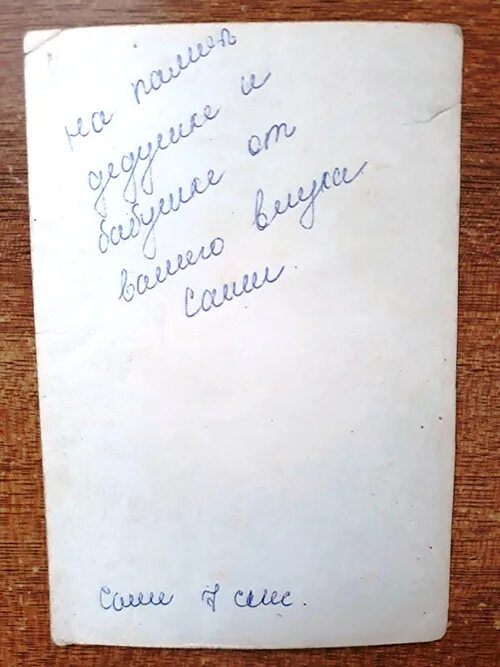 на память
дедушке и
бабушке от
вашего внука
Саши.
Саши 7 мес.